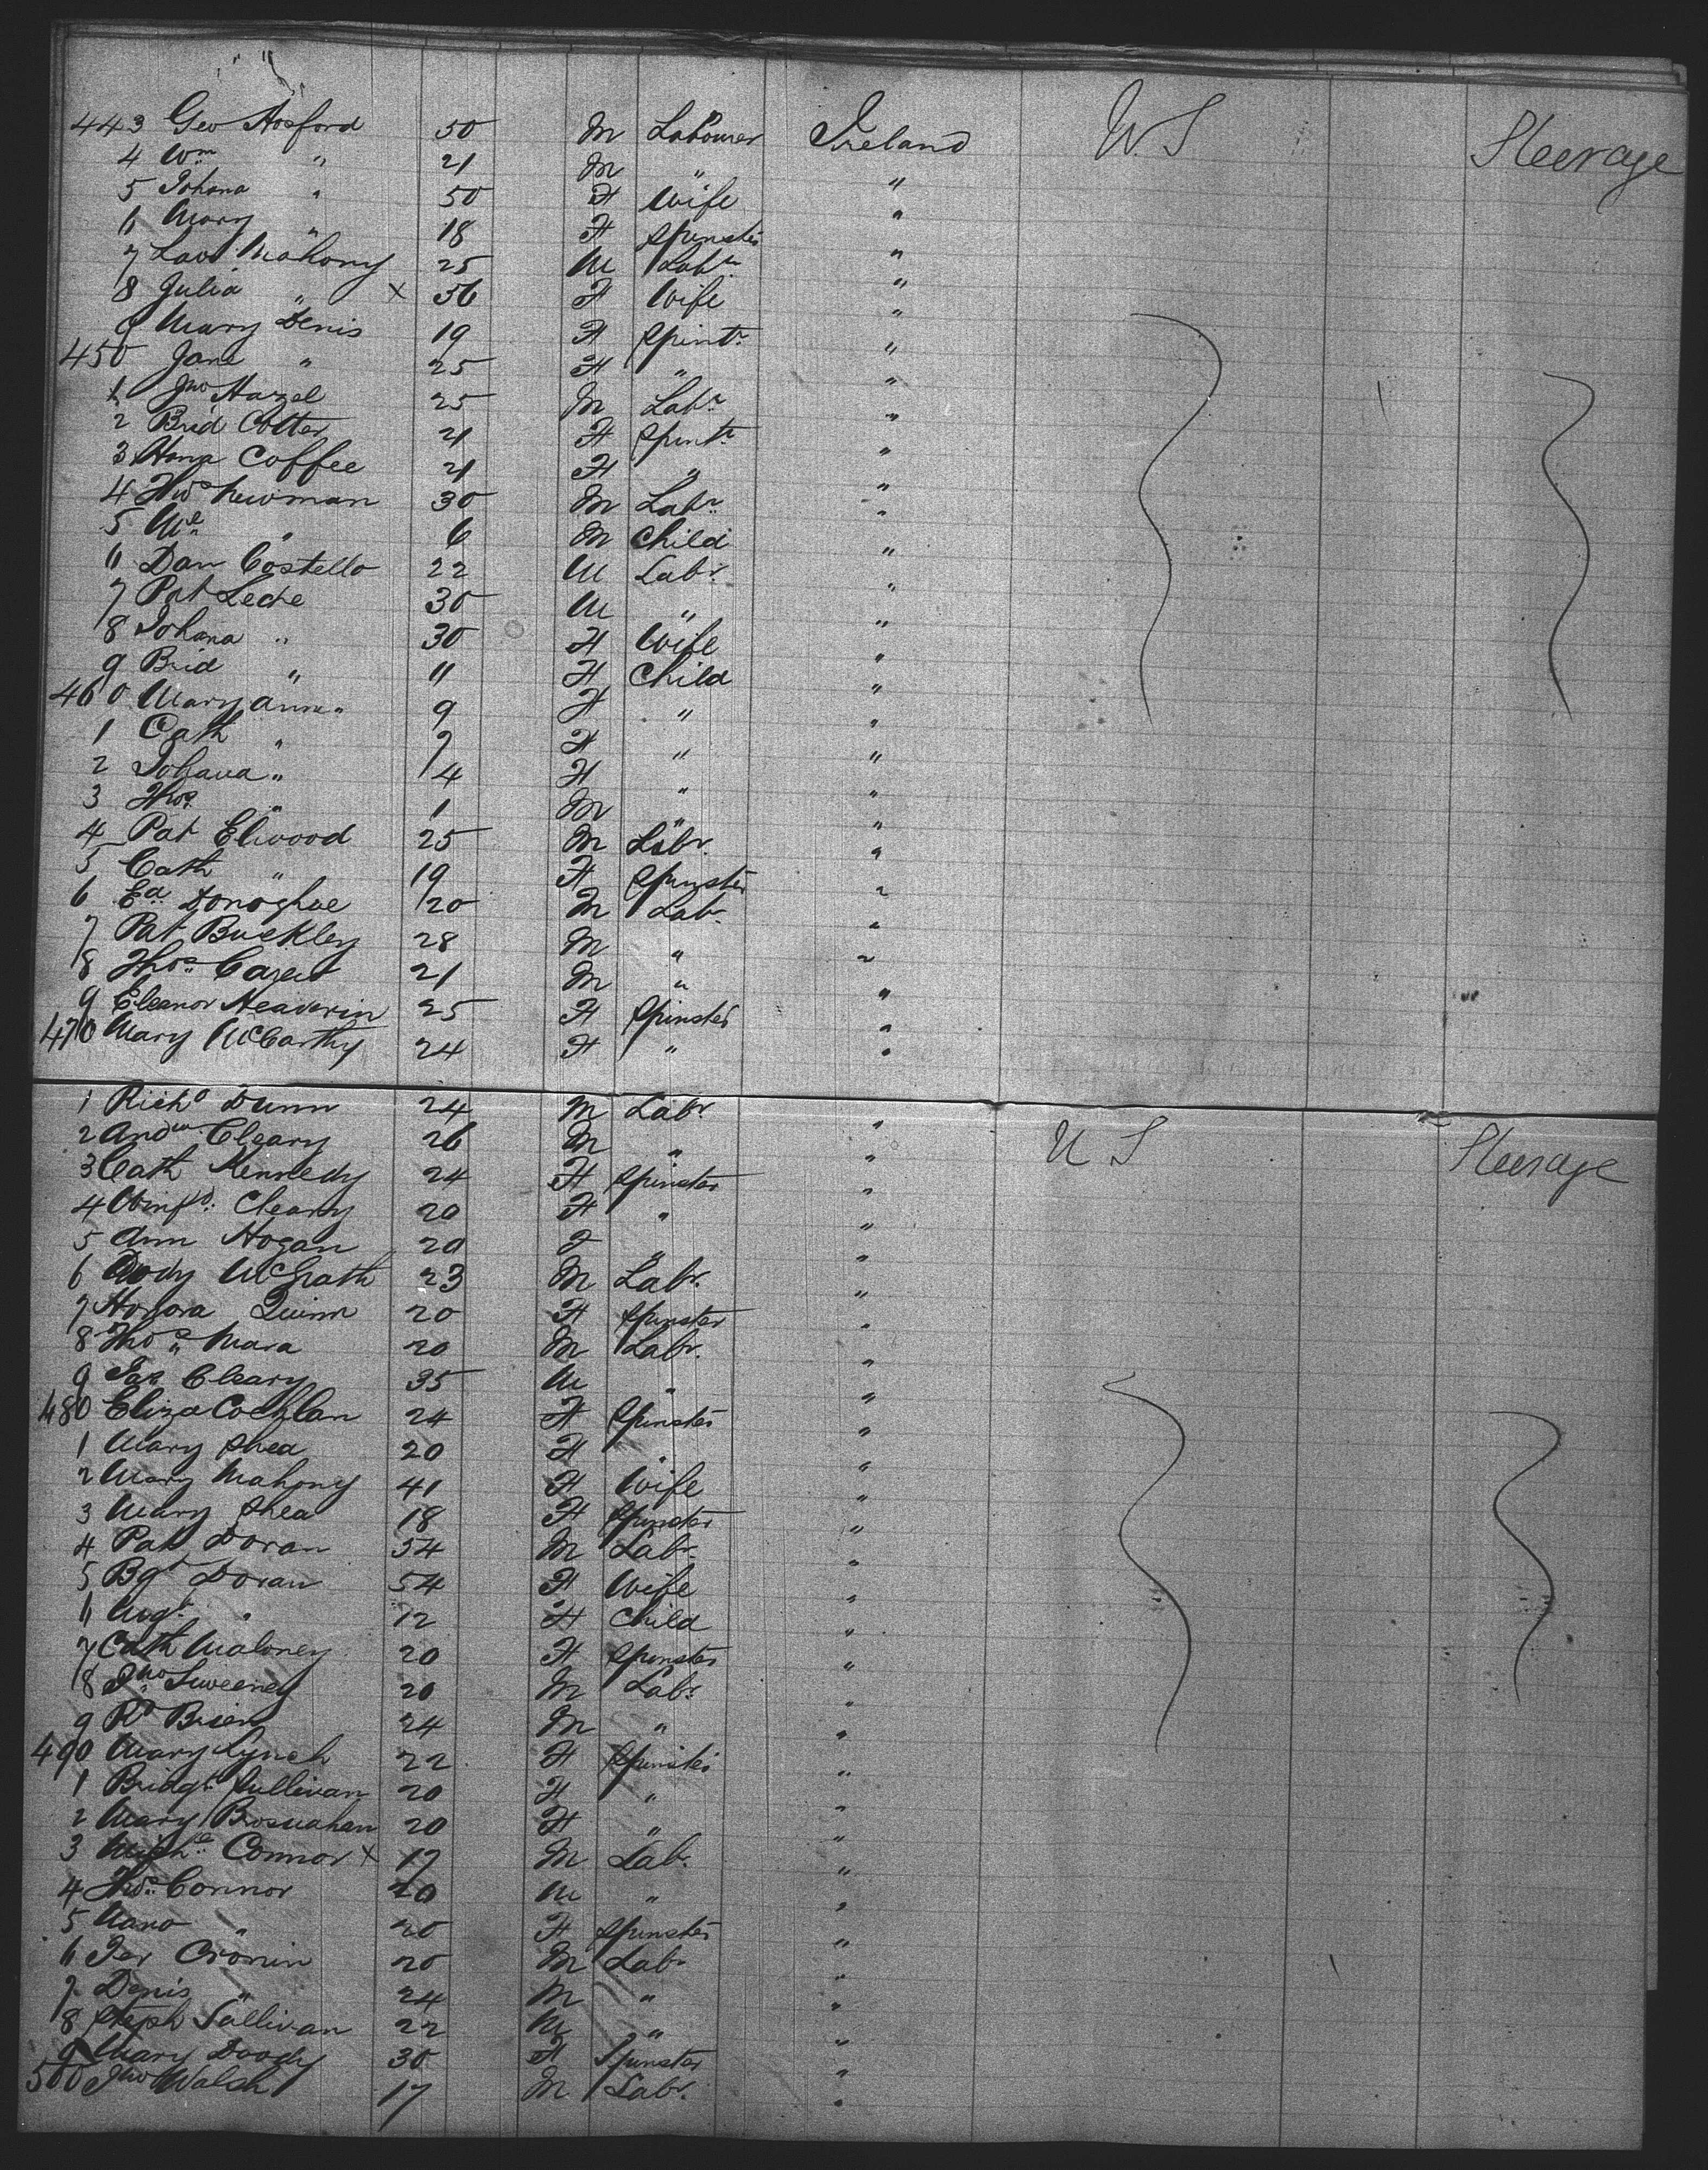 443 Geo Hosford 50 M Labourer Ireland U.S Steerage
4 Wm " 21 M " "
5 Johana " 50 F Wife "
6 Mary " 18 F Spinster "
7 Mahony 25 M Labr "
8 Julia " x 56 F Wife "
9 Mary Denis 19 F Spintr "
450 Jane " 25 F " "
1 Jno Hazel 25 M Labr "
2 Brid Cotter 21 F Spintr "
3 Hana Coffee 21 F " "
4 Newman 30 M Labr "
5 " 6 M Child "
6 Dan Costello 22 M Labr "
7 Pat Leche 30 M " "
8 Johana " 30 F Wife "
9 Brid " 11 F Child "
460 Mary Ann " 9 F " "
1 Cath " 7 F " "
2 Johana " 4 F " "
3 Thos " 1 M " "
4 Pat Elwood 25 M Labr "
5 Cath " 19 F Spinster "
6 Ed Donoghue 20 M Labr "
7 Pat Buckley 28 M " "
8 Thos 21 M " "
9 Eleanor Heaverin 25 F Spinster "
470 Mary McCarthy 24 F " "
1 Richd Dunn 24 M Labr "
2 Andw Cleary 26 M " " U S Steerage
3 Cath Kennedy 24 F Spinster "
4 Winfd Cleary 20 F " "
5 Ann Hogan 20 F " "
6 McGrath 23 M Labr "
7 Honora Quinn 20 F Spinster "
8 Thos Mara 20 M Labr "
9 Jas Cleary 35 M " "
480 Eliza Coghlan 24 F Spinster "
1 Mary Shea 20 F " "
2 Mary Mahony 41 F Wife "
3 Mary Shea 18 F Spinster "
4 Pat Doran 54 M Labr "
5 Bgt Doran 54 F Wife "
6 Mgt " 12 F Child "
7 Cath Maloney 20 F Spinster "
8 Jno Sweeney 20 M Labr "
9 Rd Brien 24 M " "
490 Mary Lynch 22 F Spinster "
1 Bridgt Sullivan 20 F " "
2 Mary Brosnahan 20 F " "
3 Michl Connor x 17 M Lab "
4 Thos Connor 20 M " "
5 Nano " 20 F Spinster "
6 Jer Cronin 20 M Labr "
7 Denis " 24 M " "
8 Steph Sullivan 22 M " "
9 Mary Doody 30 F Spinster "
500 Jno Walsh 17 M Labr "